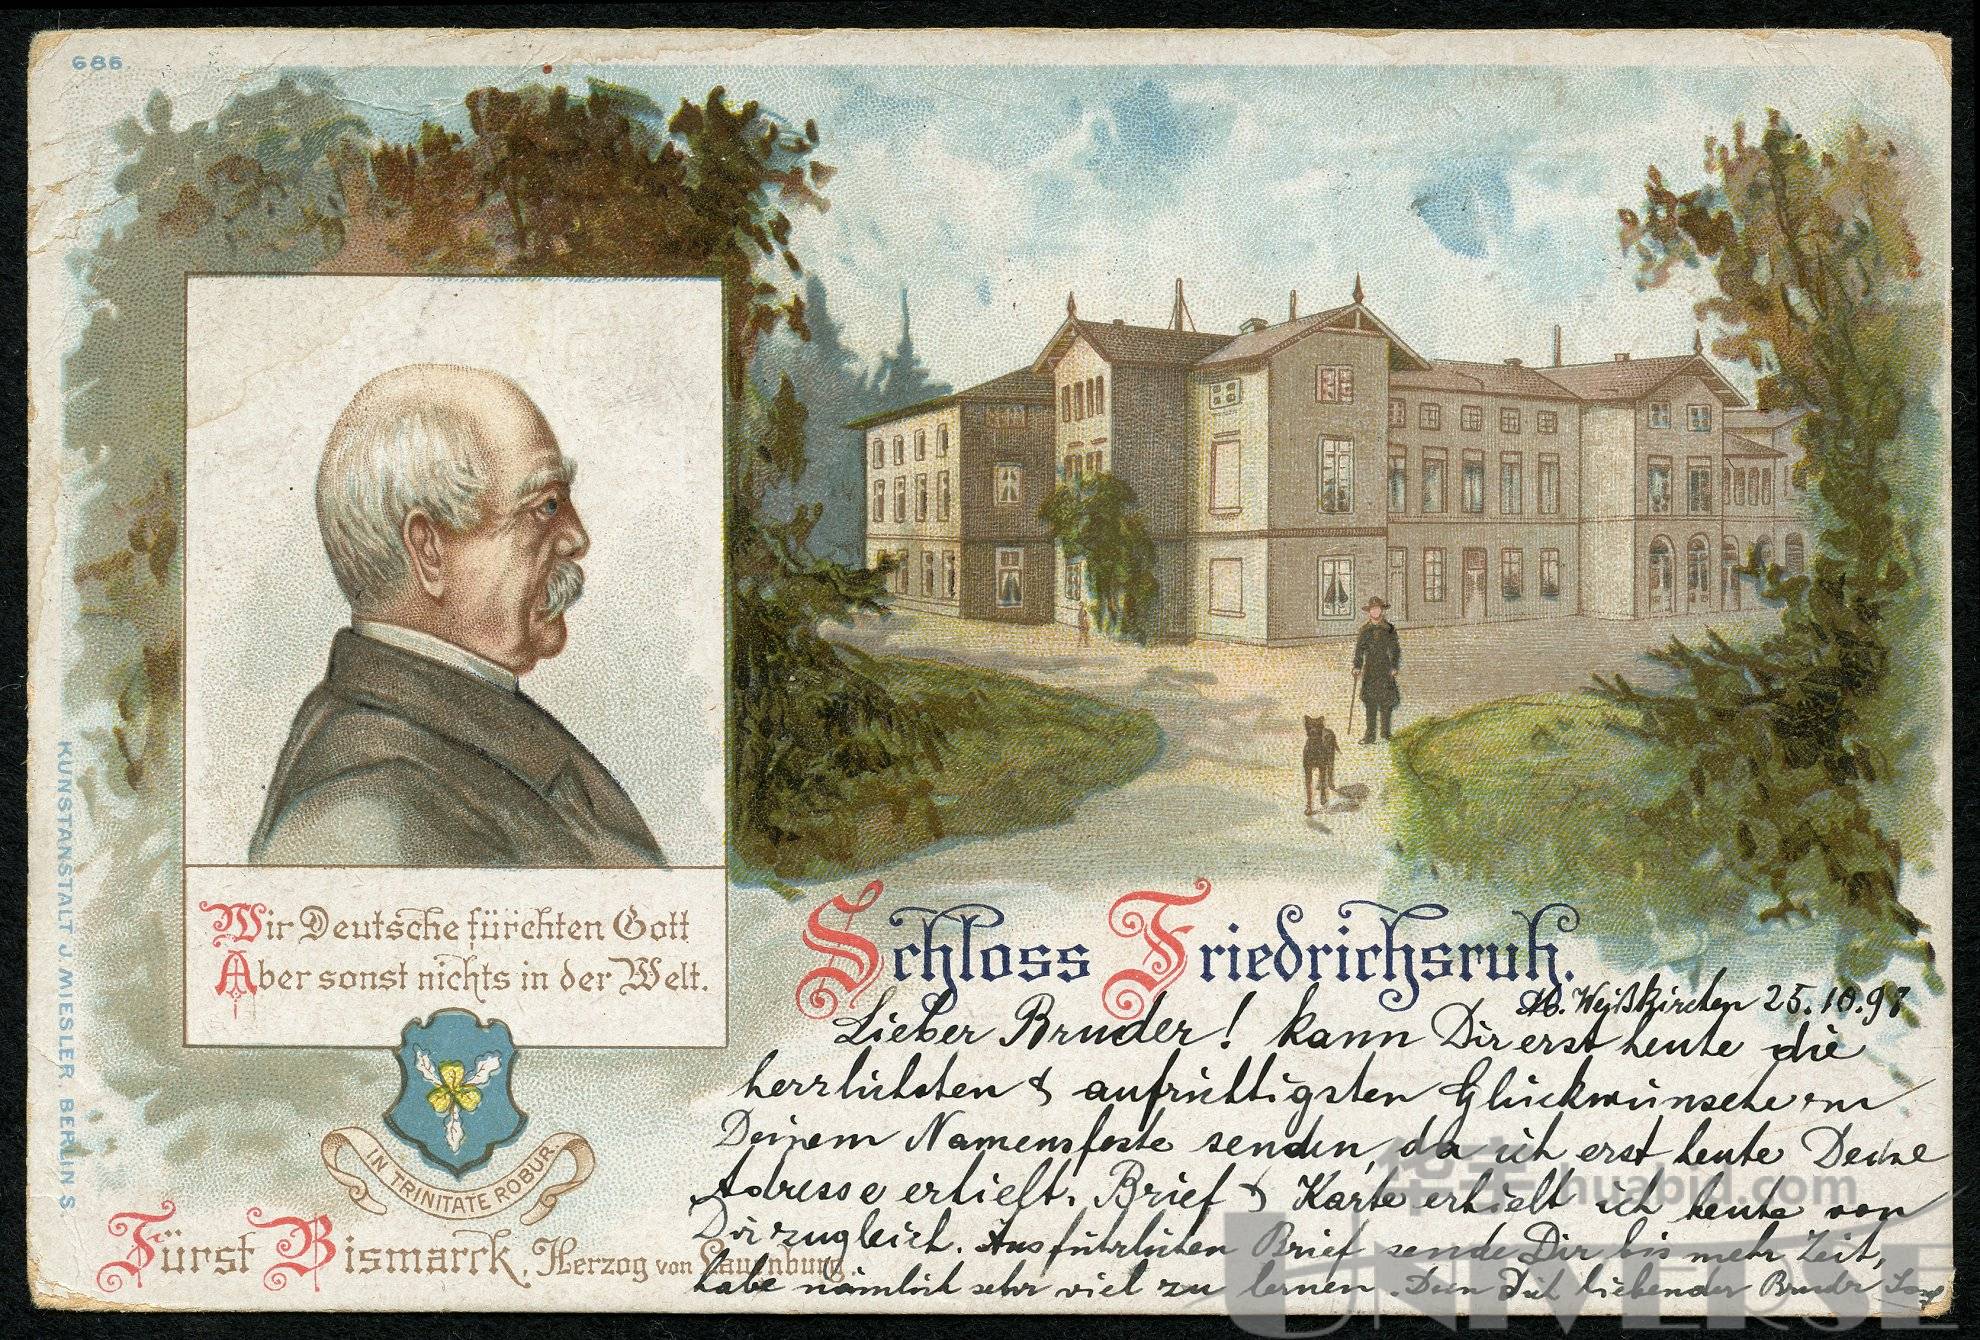 686.
Wir Deutsche fürchten Gott
Aber sonst nichts in der Welt.
IN TRINITATE ROBUR.
Fürst Bismarck, Herzog von Lauenburg.
KUNSTANSTALT J. MIESLER. BERLIN S
Schloss Friedrichsruh.
M. Weißkirchen 25.10.97
Lieber Bruder! kann Dir erst heute die
herzlichsten & aufrichtigsten Glückwünsche zu
Deinem Namensfeste senden, da ich erst heute Deine
Adresse erhielt. Brief & Karte erhielt ich heute von
Dir zugleich. Ausführlichen Brief sende Dir bis mehr Zeit,
habe nämlich sehr viel zu lernen. Dein Dich liebender Bruder
华宇 huabid.com
UNIVERSE